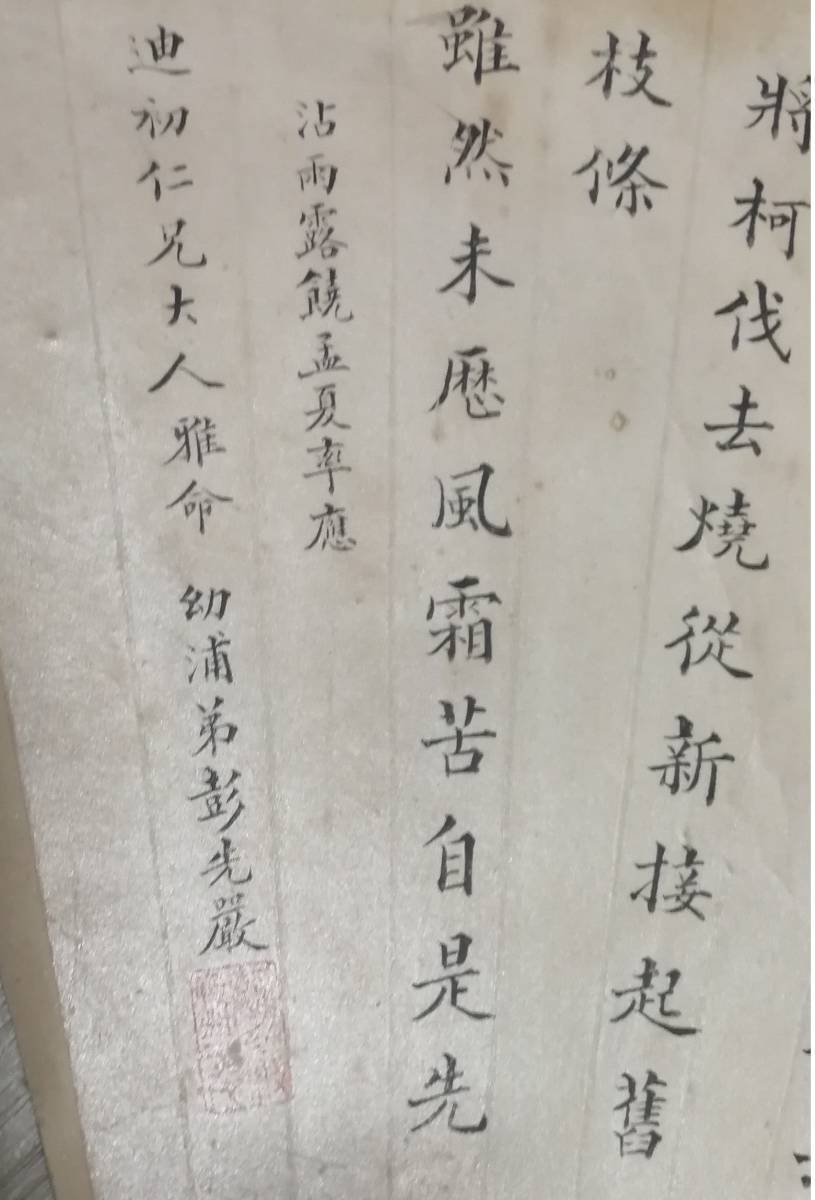 將柯伐去燒從新接起舊
枝條
雖然未歷風霜苦自是先
沾雨露饒孟夏率應
迪初仁兄大人雅命 幼浦弟彭先嚴